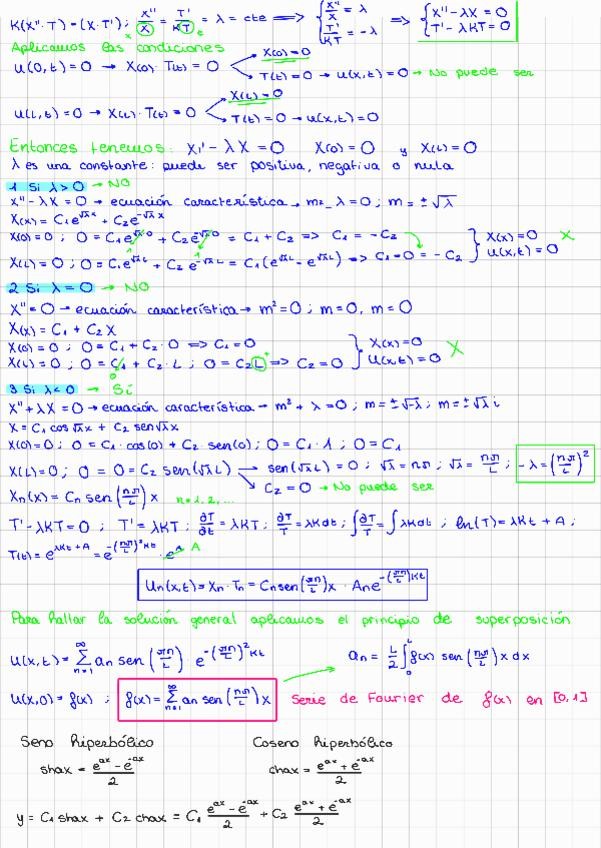 K(X''·T) = (X·T'); X''/X = T'/KT = λ = cte => { X''/X = λ ; T'/KT = -λ => { X'' - λX = 0 ; T' - λKT = 0
Aplicamos las condiciones
u(0,t) = 0 → X(0)·T(t) = 0 → X(0) = 0
T(t) = 0 → u(x,t) = 0 → No puede ser
u(L,t) = 0 → X(L)·T(t) = 0 → X(L) = 0
T(t) = 0 → u(x,t) = 0
Entonces tenemos: X'' - λX = 0 X(0) = 0 y X(L) = 0
λ es una constante: puede ser positiva, negativa o nula
1 Si λ > 0 → NO
X'' - λX = 0 → ecuación característica → m² - λ = 0; m = ±√λ
X(x) = C₁e^(√λx) + C₂e^(-√λx)
X(0) = 0; 0 = C₁e^(√λ·0) + C₂e^(-√λ·0) = C₁ + C₂ => C₁ = -C₂
X(L) = 0; 0 = C₁e^(√λL) + C₂e^(-√λL) = C₁(e^(√λL) - e^(-√λL)) => C₁ = 0 = -C₂ } X(x) = 0 u(x,t) = 0 X
2 Si λ = 0 → NO
X'' = 0 → ecuación característica → m² = 0; m = 0, m = 0
X(x) = C₁ + C₂X
X(0) = 0; 0 = C₁ + C₂·0 => C₁ = 0
X(L) = 0; 0 = C₁ + C₂·L; 0 = C₂L => C₂ = 0 } X(x) = 0 u(x,t) = 0 X
3 Si λ < 0 → Sí
X'' + λX = 0 → ecuación característica → m² + λ = 0; m = ±√-λ; m = ±√λ i
X = C₁ cos √λx + C₂ sen √λx
X(0) = 0; 0 = C₁·cos(0) + C₂·sen(0); 0 = C₁·1; 0 = C₁
X(L) = 0; 0 = 0 = C₂ sen(√λL) → sen(√λL) = 0; √λL = nπ; √λ = nπ/L; -λ = (nπ/L)²
C₂ = 0 → No puede ser
Xn(x) = Cn sen(nπ/L)x n = 1, 2, ...
T' - λKT = 0; T' = λKT; ∂T/∂t = λKT; ∂T/T = λKdt; ∫∂T/T = ∫λKdt; ln(T) = λKt + A;
T(t) = e^(λKt + A) = e^(-(nπ/L)²Kt)·e^A A
Un(x,t) = Xn·Tn = Cn sen(nπ/L)x · An e^(-(nπ/L)²Kt)
Para hallar la solución general aplicamos el principio de superposición
u(x,t) = ∞Σn=1 an sen(nπ/L)·e^(-(nπ/L)²Kt) an = L/2 ∫₀ᴸ f(x) sen(nπ/L)x dx
u(x,0) = f(x); f(x) = ∞Σn=1 an sen(nπ/L)x Serie de Fourier de f(x) en [0,1]
Seno hiperbólico Coseno hiperbólico
shax = (e^ax - e^-ax)/2 chax = (e^ax + e^-ax)/2
y = C₁ shax + C₂ chax = C₁ (e^ax - e^-ax)/2 + C₂ (e^ax + e^-ax)/2